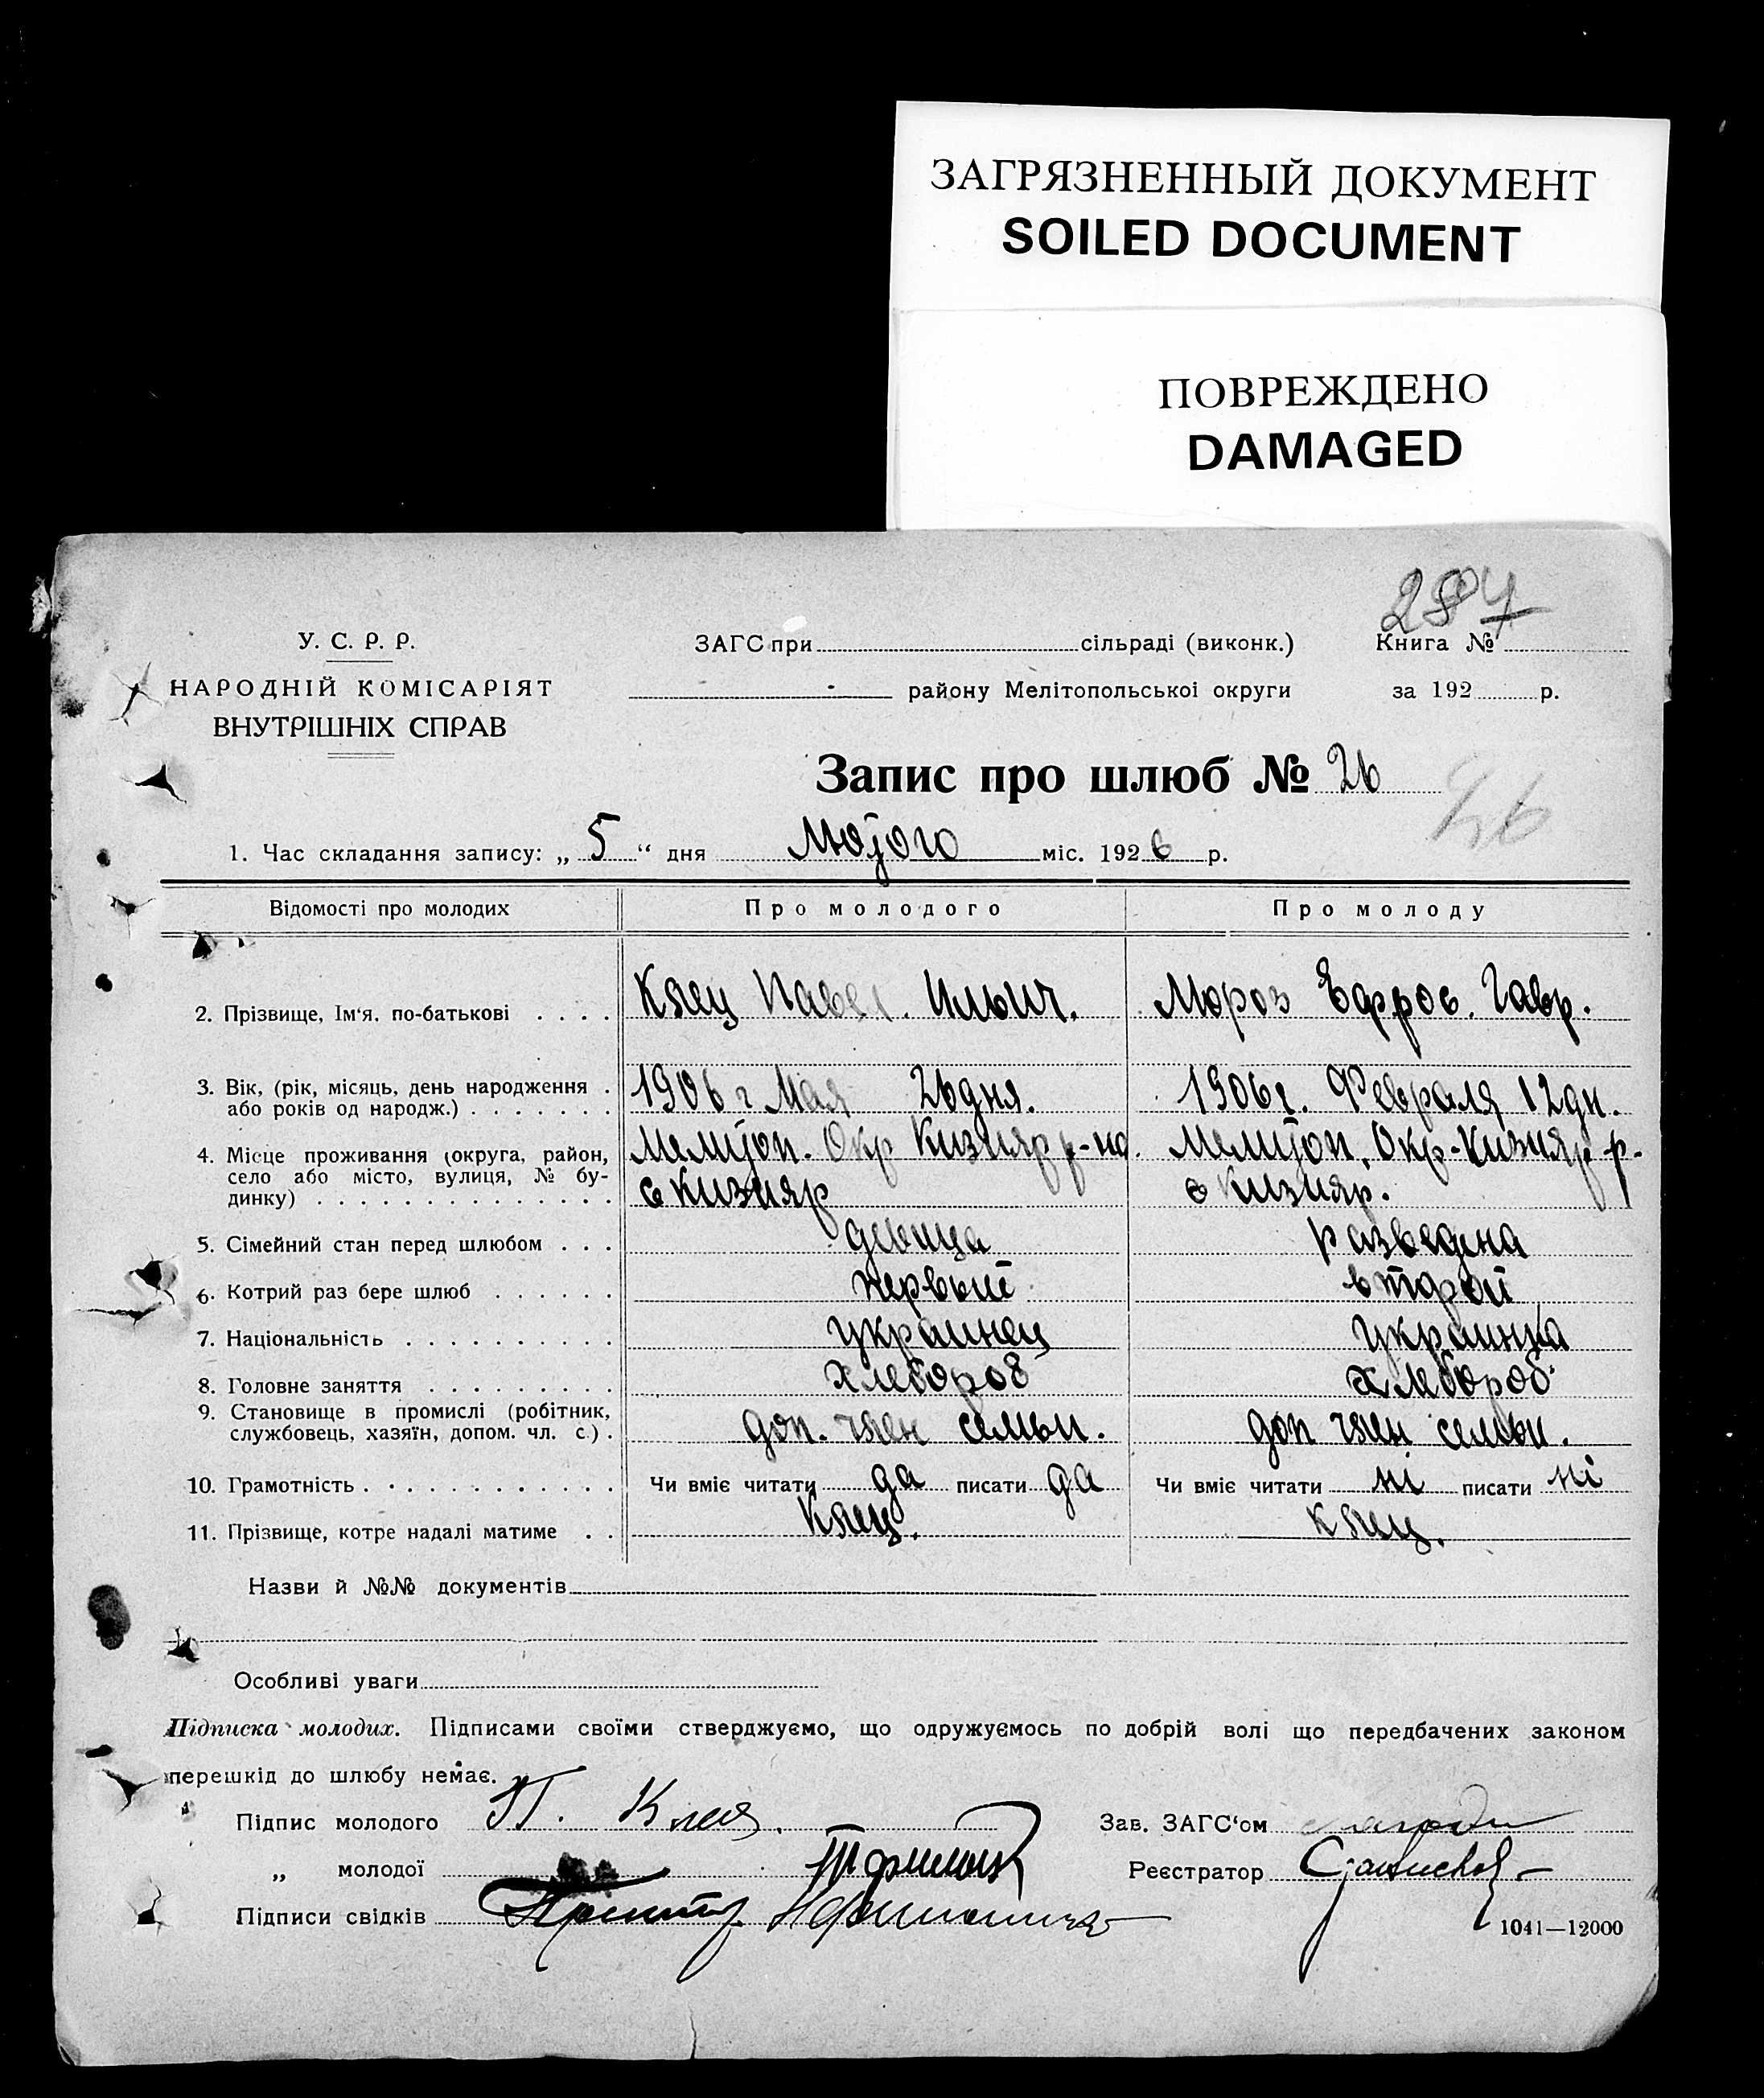 ЗАГРЯЗНЕННЫЙ ДОКУМЕНТ
SOILED DOCUMENT
ПОВРЕЖДЕНО
DAMAGED
У. С. Р. Р.
НАРОДНІЙ КОМІСАРІЯТ
ВНУТРІШНІХ СПРАВ
ЗАГС при сільраді (виконк.)
району Мелітопольської округи
287
Книга №
за 192 р.
Запис про шлюб № 26
26
1. Час складання запису: „ 5 “ дня Лютого міс. 1926 р.
Відомості про молодих Про молодого Про молоду
2. Прізвище, Ім‘я, по-батькові . . . . Павел. Ильич. Мороз Ефрос. Гавр.
3. Вік, (рік, місяць, день народження . 1906 г Мая 26 дня. 1906 г. Февраля 12 дн.
або років од народж.) . . . . . . .
4. Місце проживання (округа, район, Мелитоп. Окр Кизияр р-на. Мелитоп. Окр-Кизияр р-
село або місто, вулиця, № бу- с Кизияр с Кизияр.
динку) . . . . . . . . . . . . . .
5. Сімейний стан перед шлюбом . . . девица разведена
6. Котрий раз бере шлюб . . . . . . первый второй
7. Національність . . . . . . . . . . украинец украинка
8. Головне заняття . . . . . . . . . хлебороб хлебороб
9. Становище в промислі (робітник, доп. член семьи. доп член семьи.
службовець, хазяїн, допом. чл. с.) .
10. Грамотність . . . . . . . . . . . Чи вміє читати да писати да Чи вміє читати ні писати ні
11. Прізвище, котре надалі матиме . .
Назви й №№ документів
Особливі уваги
Підписка молодих. Підписами своїми стверджуємо, що одружуємось по добрій волі що передбачених законом
перешкід до шлюбу немає.
Підпис молодого П.
Зав. ЗАГС‘ом
„ молодої
Реєстратор
Підписи свідків
1041—12000